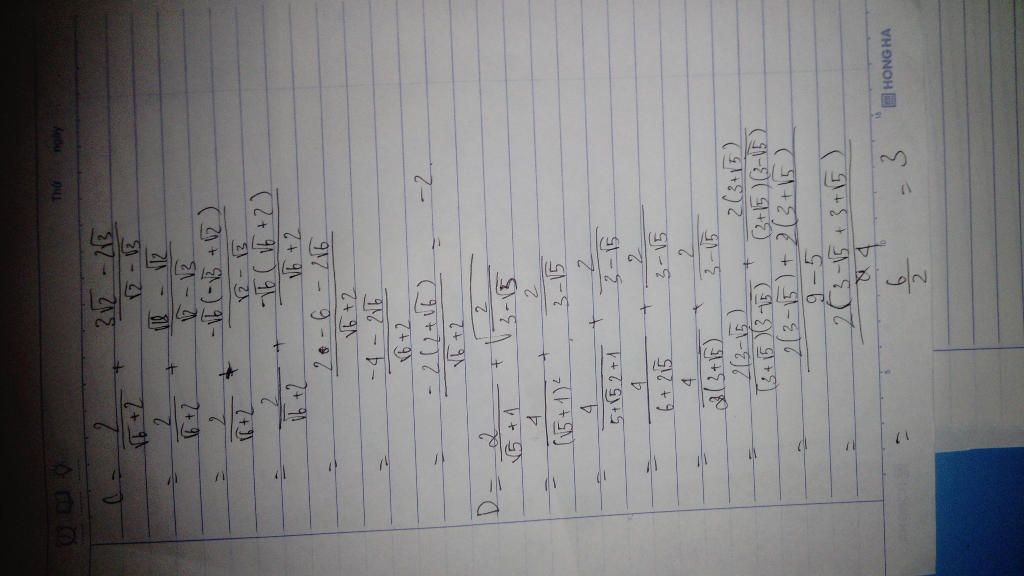 Thứ ngày
C = 2/(√6 + 2) + (3√2 - 2√3)/(√2 - √3)
= 2/(√6 + 2) + (√18 - √12)/(√2 - √3)
= 2/(√6 + 2) + -√6(-√3 + √2)/(√2 - √3)
= 2/(√6 + 2) + -√6(√6 + 2)/(√6 + 2)
= (2 - 6 - 2√6)/(√6 + 2)
= (-4 - 2√6)/(√6 + 2)
= -2(2 + √6)/(√6 + 2) = -2
D = 2/(√5 + 1) + √(2/(3 - √5))
= 4/(√5 + 1)² + 2/(3 - √5)
= 4/(5 + √5 2 + 1) + 2/(3 - √5)
= 4/(6 + 2√5) + 2/(3 - √5)
= 4/2(3 + √5) + 2/(3 - √5)
2(3 - √5)/(3 + √5)(3 - √5) + 2(3 + √5)/(3 + √5)(3 - √5)
= (2(3 - √5) + 2(3 + √5))/(9 - 5)
= 2(3 - √5 + 3 + √5)/4
= 6/2 = 3
HONG HA